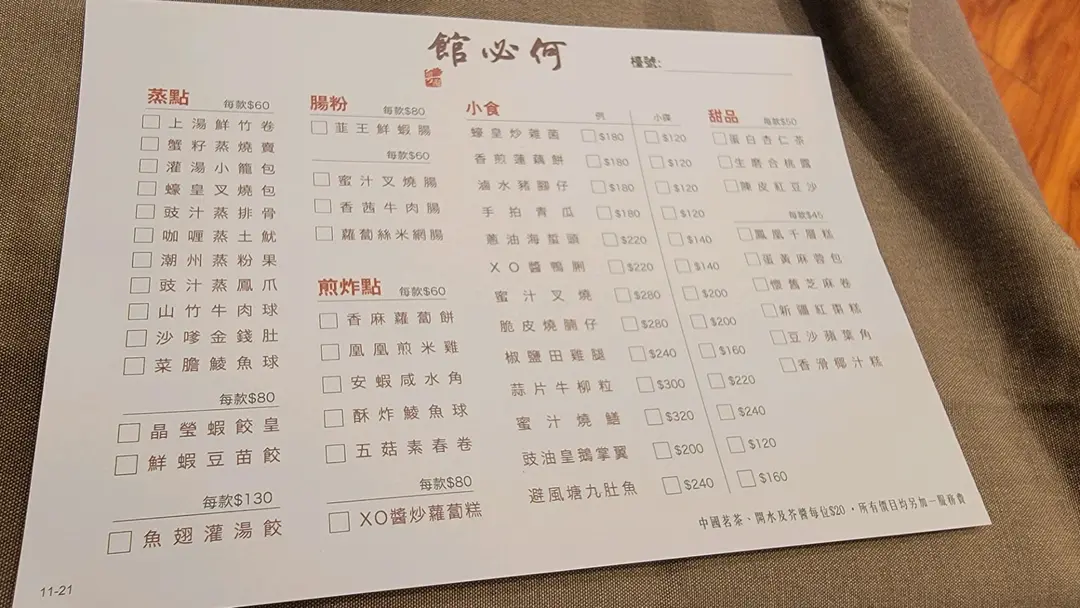 何必館
檯號:
蒸點 每款$60
上湯鮮竹卷
蟹籽蒸燒賣
灌湯小籠包
蠔皇叉燒包
豉汁蒸排骨
咖喱蒸土魷
潮州蒸粉果
豉汁蒸鳳爪
山竹牛肉球
沙嗲金錢肚
菜膽鯪魚球
每款$80
晶瑩蝦餃皇
鮮蝦豆苗餃
每款$130
魚翅灌湯餃
11-21
腸粉 每款$80
韮王鮮蝦腸
每款$60
蜜汁叉燒腸
香茜牛肉腸
蘿蔔絲米網腸
煎炸點 每款$60
香麻蘿蔔餅
凰凰煎米雞
安蝦咸水角
酥炸鯪魚球
五菇素春卷
每款$80
XO醬炒蘿蔔糕
小食 例 小碟
蠔皇炒雜菌 $180 $120
香煎蓮藕餅 $180 $120
滷水豬腳仔 $180 $120
手拍青瓜 $180 $120
蔥油海蜇頭 $220 $140
XO醬鴨脷 $220 $140
蜜汁叉燒 $280 $200
脆皮燒腩仔 $280 $200
椒鹽田雞腿 $240 $160
蒜片牛柳粒 $300 $220
蜜汁燒鱔 $320 $240
豉油皇鵝掌翼 $200 $120
避風塘九肚魚 $240 $160
甜品 每款$50
蛋白杏仁茶
生磨合桃露
陳皮紅豆沙
每款$45
鳳凰千層糕
蛋黃麻蓉包
懷舊芝麻卷
新疆紅棗糕
豆沙蘋葉角
香滑椰汁糕
中國茗茶、開水及芥醬每位$20，所有價目均另加一服務費